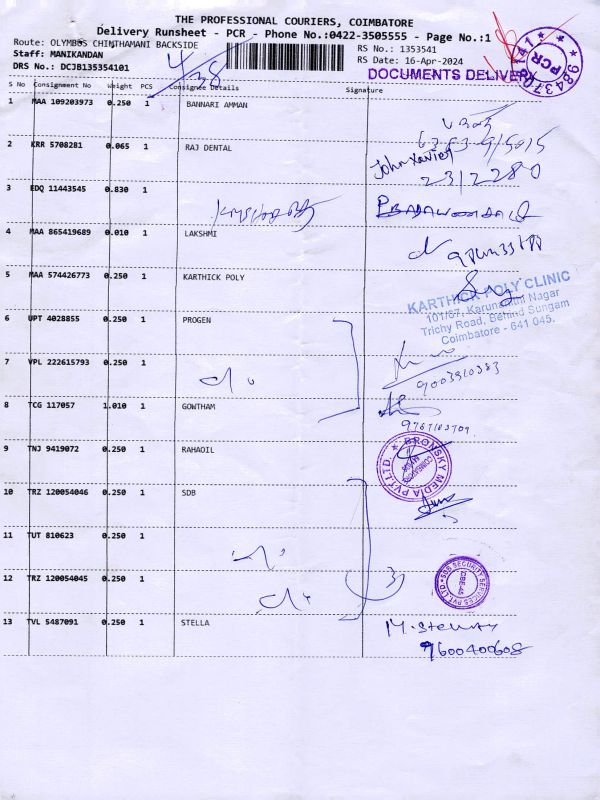 THE PROFESSIONAL COURIERS, COIMBATORE
Delivery Runsheet - PCR - Phone No.:0422-3505555 - Page No.:1
Route: OLYMBUS CHINTHAMANI BACKSIDE
RS No.: 1353541
Staff: MANIKANDAN
RS Date: 16-Apr-2024
DRS No.: DCJB135354101
DOCUMENTS DELIVERY
PCR
S No Consignment No Weight PCS Consignee Details Signature
1 MAA 109203973 0.250 1 BANNARI AMMAN
2 KRR 5708281 0.065 1 RAJ DENTAL
John Xavier
3 EDQ 11443545 0.830 1
4 MAA 865419689 0.010 1 LAKSHMI
5 MAA 574426773 0.250 1 KARTHICK POLY
KARTHICK POLY CLINIC
101/67, Karunanithi Nagar
Trichy Road, Behind Sungam
Coimbatore - 641 045.
6 UPT 4028855 0.250 1 PROGEN
7 VPL 222615793 0.250 1
9003910383
8 TCG 117057 1.010 1 GOWTHAM
9 TNJ 9419072 0.250 1 RAHAOIL
BRONSKY MEDIA PVT. LTD.
10 TRZ 120054046 0.250 1 SDB
11 TUT 810623 0.250 1
12 TRZ 120054045 0.250 1
SDB SECURITY SERVICES PVT LTD
CBE-45
13 TVL 5487091 0.250 1 STELLA
9600400608